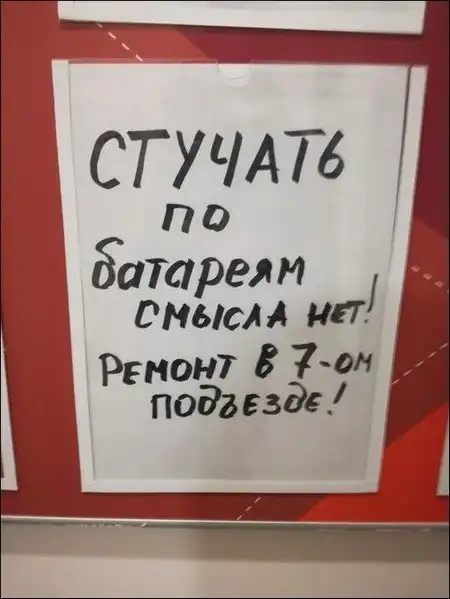 СТУЧАТЬ
по
батареям
смысла нет!
Ремонт в 7-ом
подъезде!